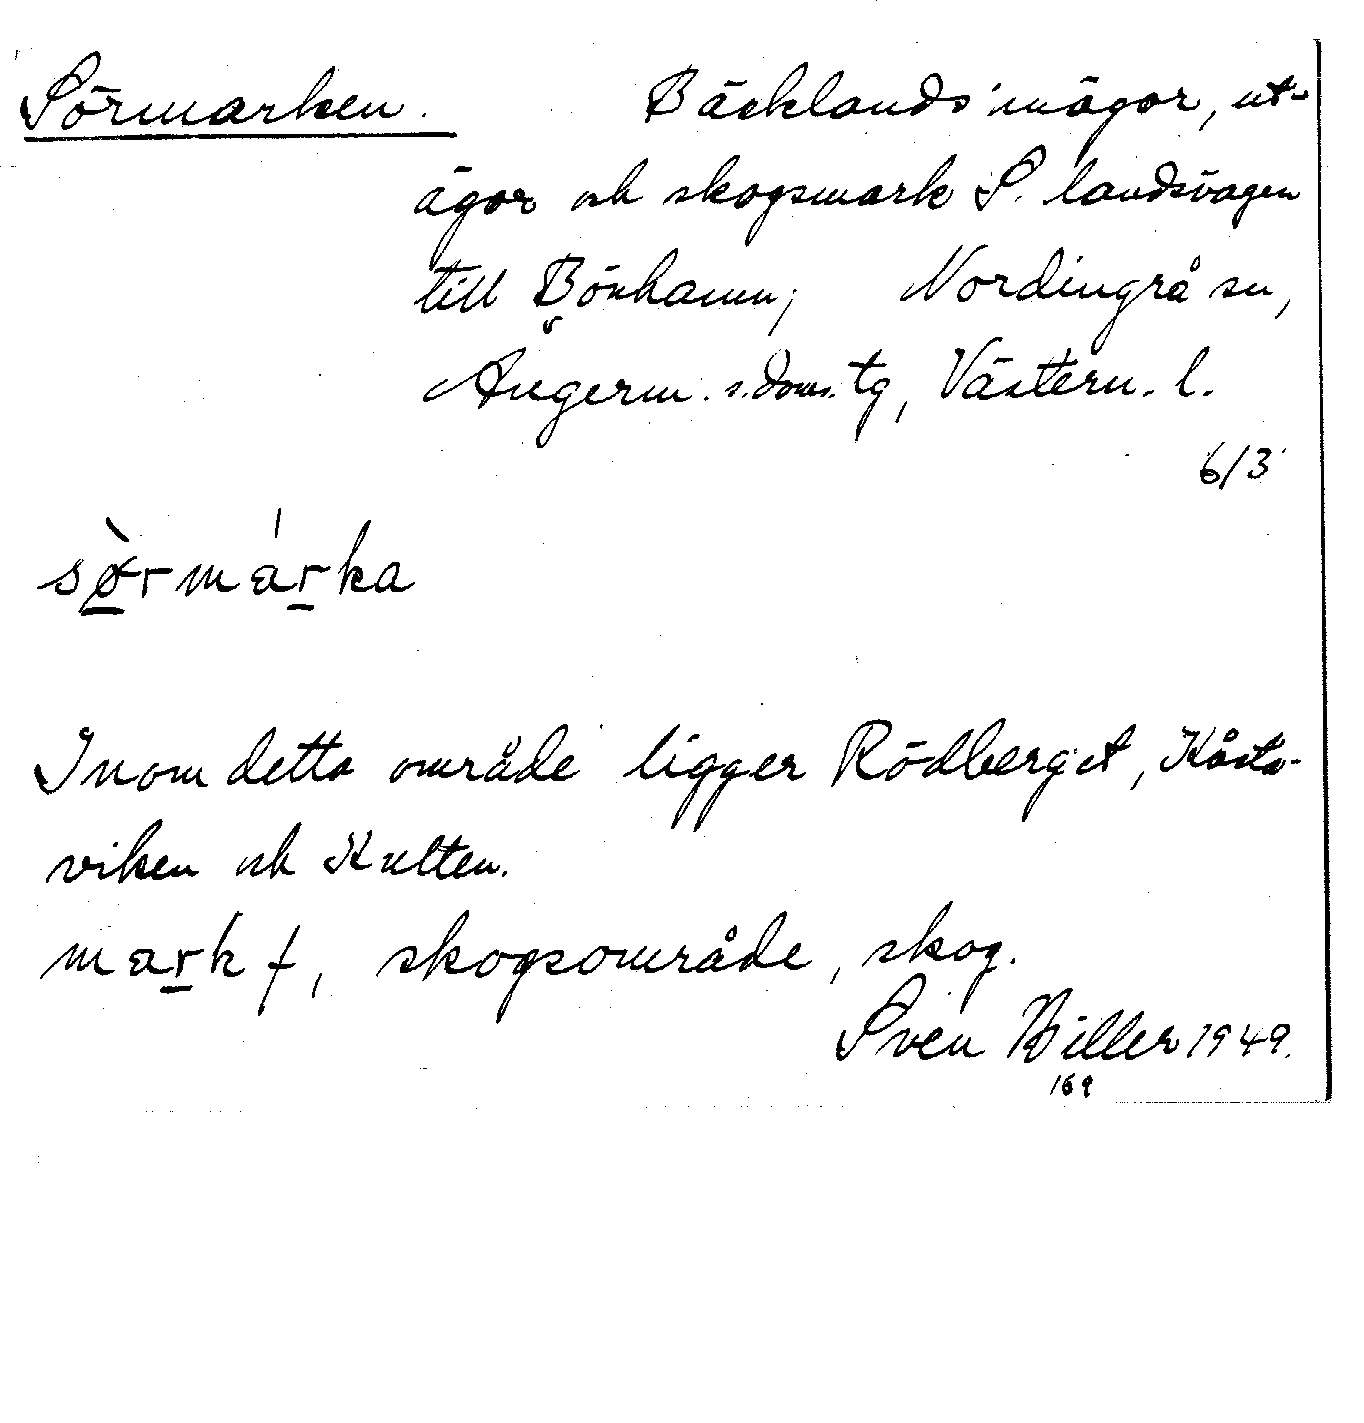 Sörmarken. Bäcklands inägor, ut-
ägor och skogsmark S. landsvägen
till Bönhamn; Nordingrå sn,
Ångerm. s. doms. tg, Västern. l.
6/3
sø̀rmárka
Inom detta område ligger Rödberget, Kåsta-
viken och Kulten.
mark f, skogsområde, skog.
Sven Biller 1949.
169